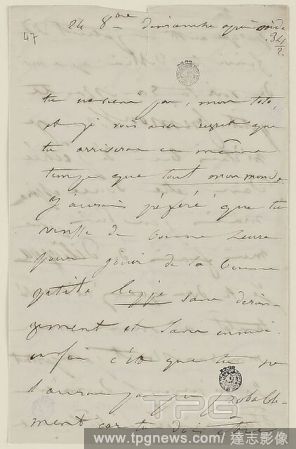 47
24 8bre dimanche après midi
3 h ½
tu ne viens pas, mon toto
et je vois avec regret que
tu arriveras en même
temps que tout mon monde.
J'aurais préféré que tu
vinsses de bonne heure
pour jouir de la bonne
petite sans déran
gement et sans ennui.
enfin c'est que tu ne
l'auras pas pu probable
ment car tu dois
TPG
www.tpgnews.com / 達志影像